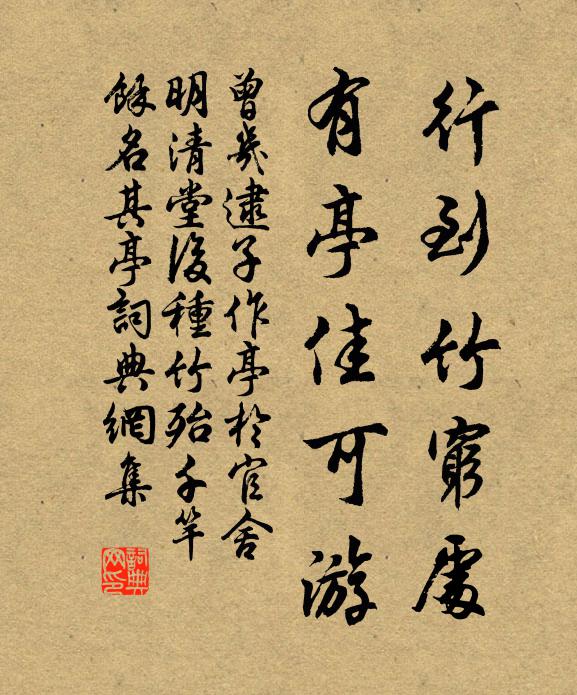 行到竹窮處
有亭佳可游
曾幾逮子作亭於官舍
明清堂後種竹殆千竿
餘名其亭詞典網集
詞典网印